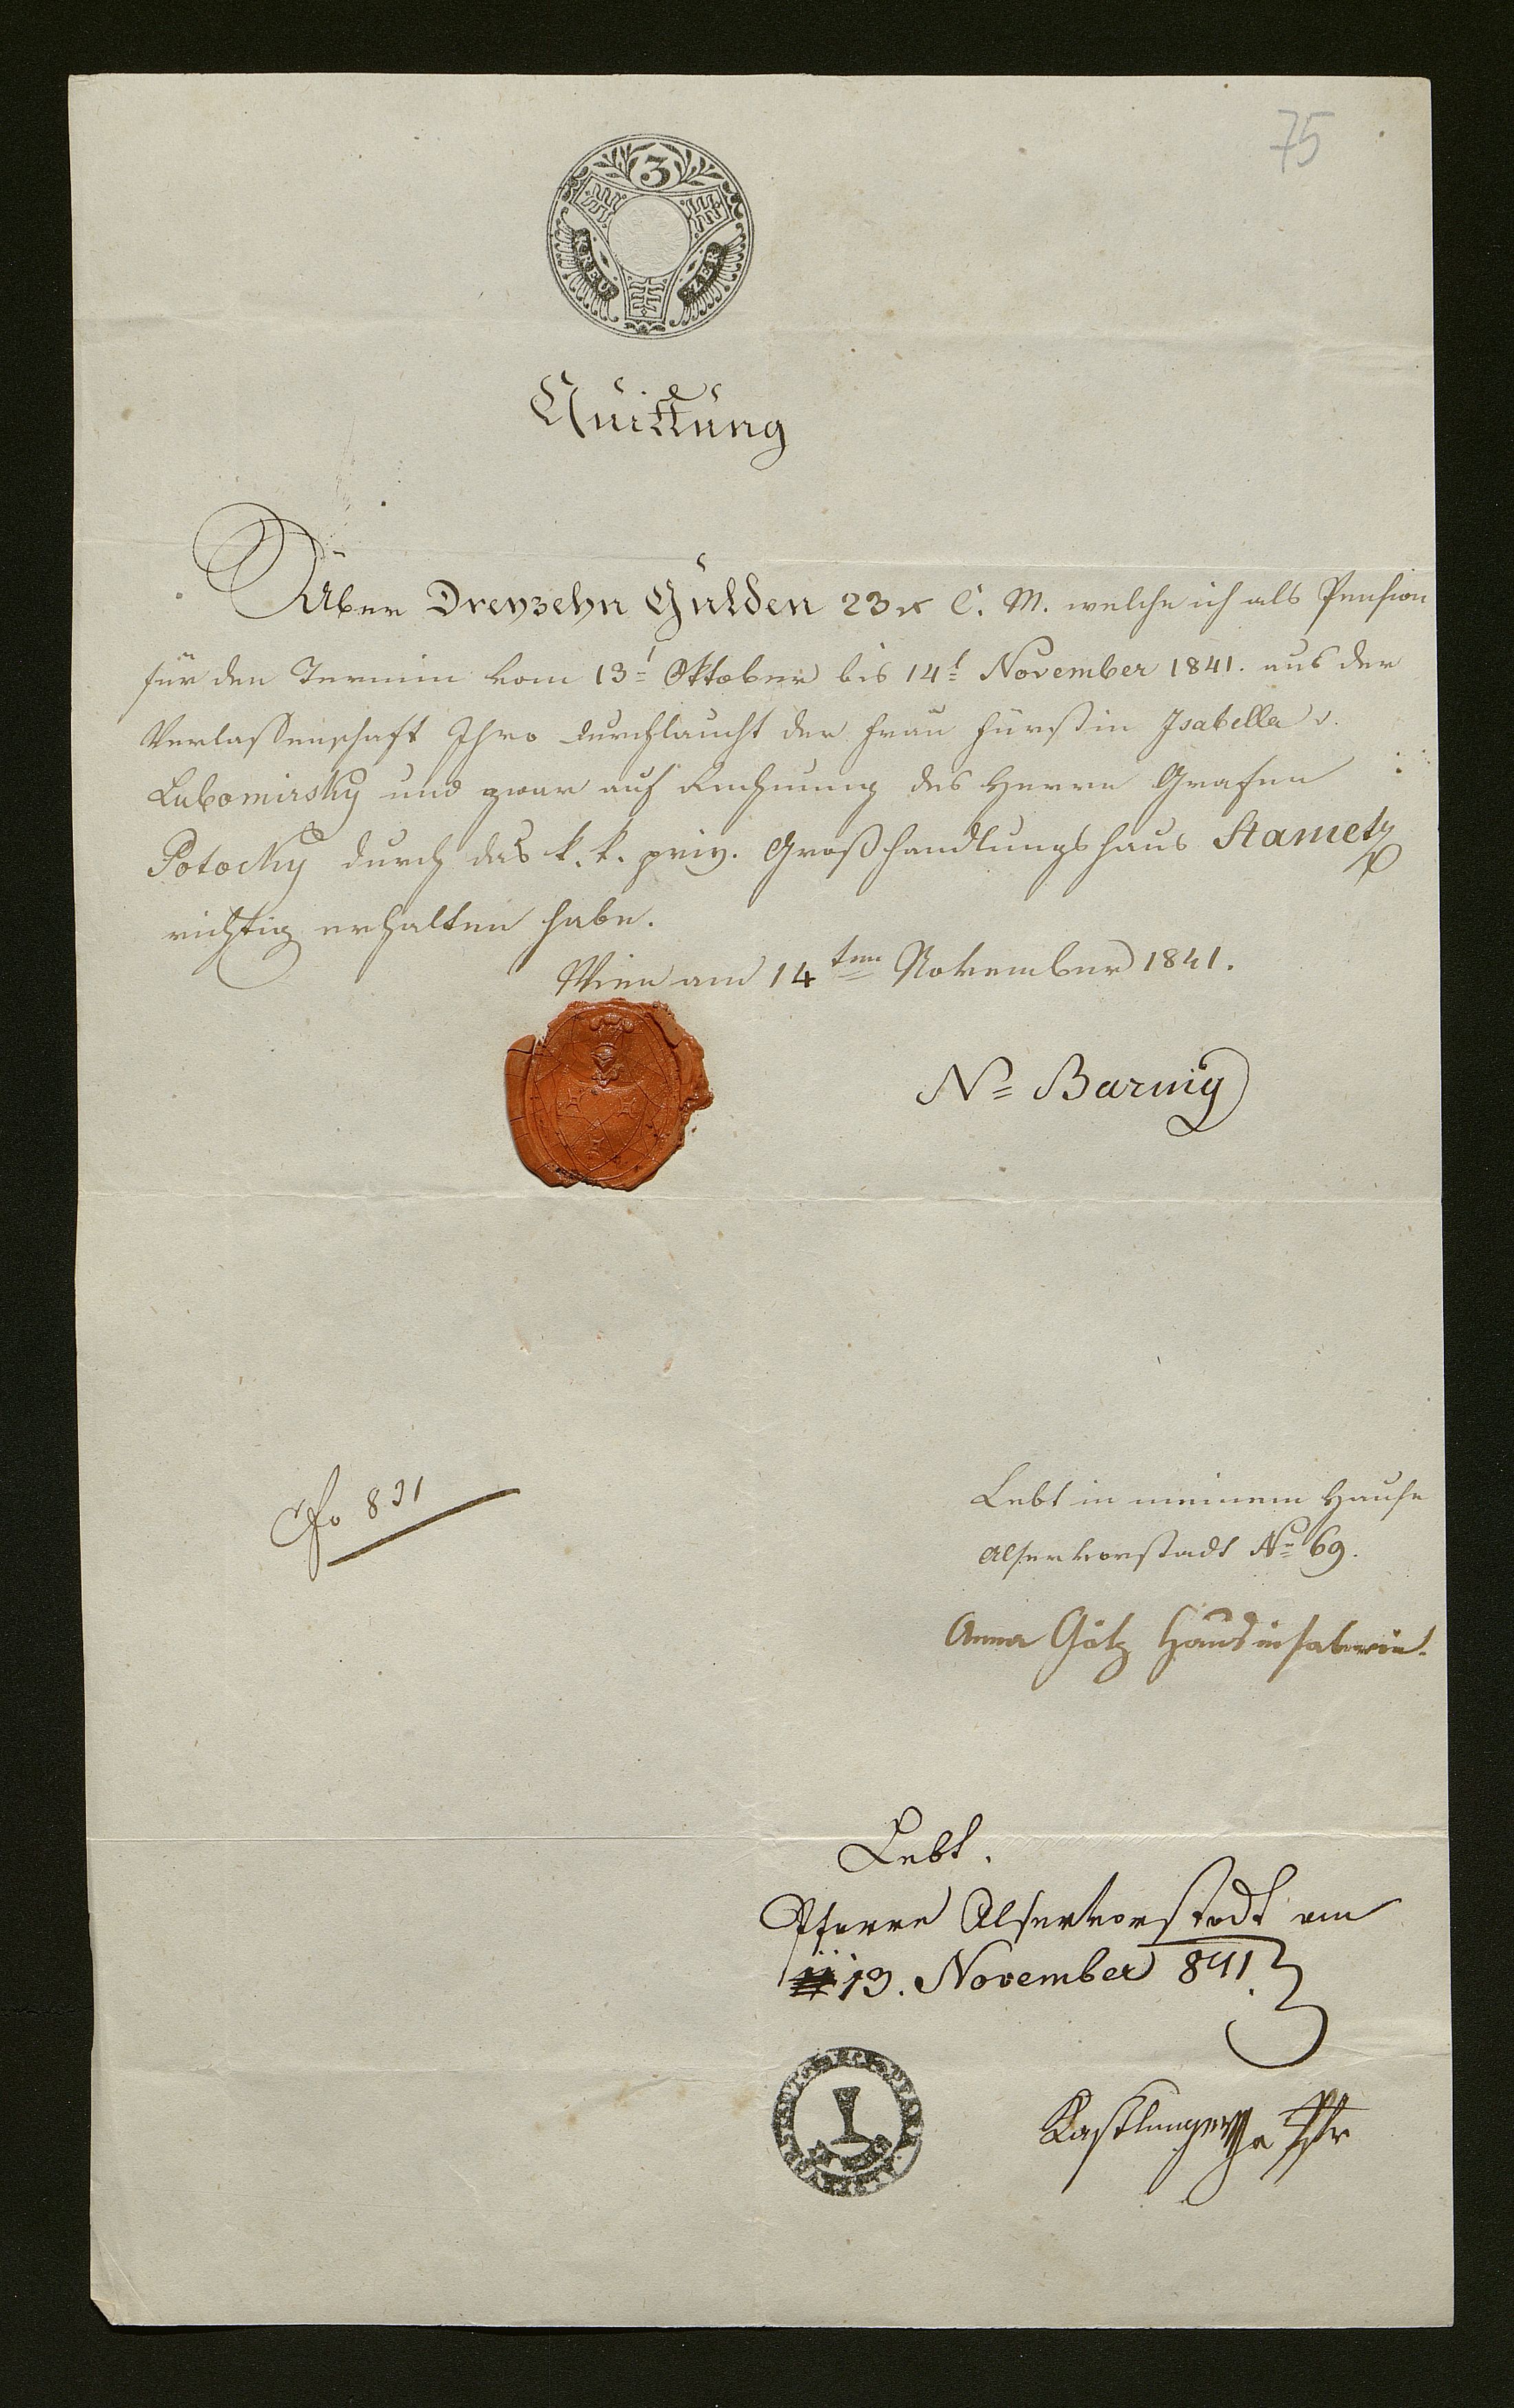 75
3
KREU ZER
Quittung
Über Dreyzehn Gulden 23 x C. M. welche ich als Pension
für den Termin vom 13t Oktober bis 14t November 1841. aus der
Verlassenschaft Ihro Durchlaucht der Frau Fürstin Isabella v.
Lubomirsky und zwar auf Rechnung des Herrn Grafen
Potocky durch das k. k. priv. Großhandlungshaus Stametz
richtig erhalten habe.
Wien am 14ten November 1841.
N= Barnig
Fo 831
Lebt in meinem Hause
Alservorstadt No 69.
Anna Götz Hausinhaberin.
Lebt.
Pfarre Alservorstadt am
13. November 841.